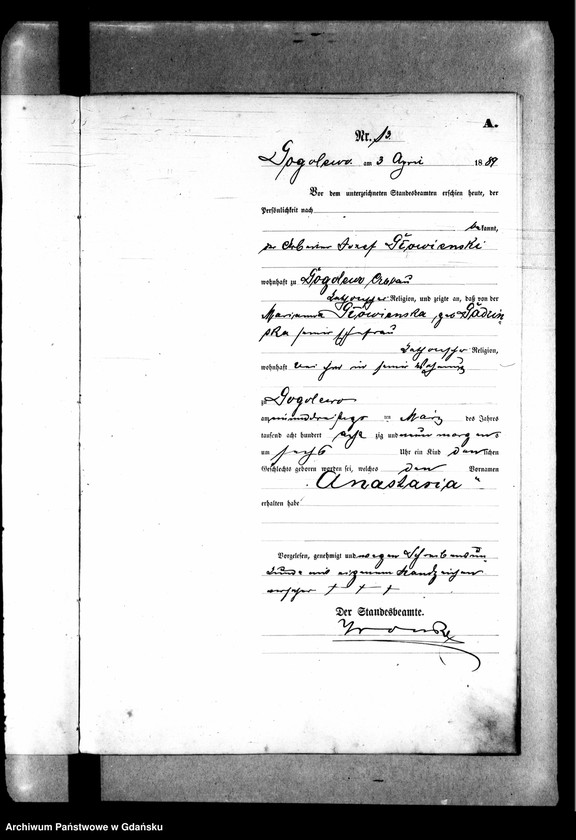 A.
Nr. 13.
Gogolewo am 3 April 1889
Vor dem unterzeichneten Standesbeamten erschien heute, der
Persönlichkeit nach
bekannt,
der Arbeiter Josef Głowienski
wohnhaft zu Gogolewo
katholischer Religion, und zeigte an, daß von der
Marianna Głowienska, geb
seiner Ehefrau
katholischer Religion,
wohnhaft bei ihm in seiner Wohnung
zu Gogolewo
am März des Jahres
tausend acht hundert achtzig und neun morgens
um sechs Uhr ein Kind lichen
Geschlechts geboren worden sei, welches den Vornamen
Anastasia
erhalten habe
Vorgelesen, genehmigt und wegen Schreibensun
kunde mit eigenem Handzeichen
versehen + + +
Der Standesbeamte.
Archiwum Państwowe w Gdańsku